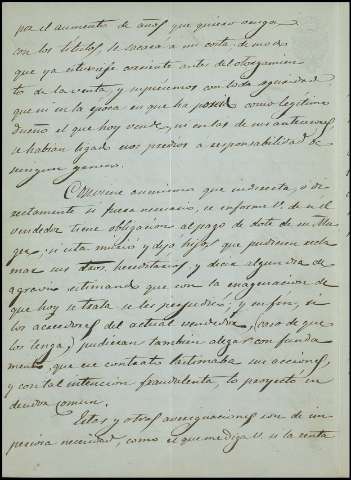 por el aumento de años que quiero venga
con los títulos, se sacará a mi costa, de modo
que ya estuviese corriente antes del otorgamien
to de la venta, y supiesemos con toda seguridad
que ni en la época en que ha poseido como legítimo
dueño el que hoy vende, ni en las de sus antecesores
se habían ligado esos predios a responsabilidad de
ninguno genero.
Conviene asimismo que indirecta, o di
rectamente si fuera necesario, se informe V. de si el
vendedor tiene obligacion al pago de dote de su Mu
ger; si esta murió y dejó hijos que pudiesen recla
mar sus dros. hereditarios y decir algun dia de
agravio estimando que con la enagenacion de
que hoy se trata se les perjudicó; y en fin, si
los acreedores del actual vendedor, (caso de que
los tenga,) pudieran tambien alegar con funda
mento, que ese contrato lastimaba sus acciones,
y con tal intencion fraudulenta, lo proyectó su
deudor comun.
Estas y otras averiguaciones son de im-
periosa necesidad, como el que me diga V. si la venta